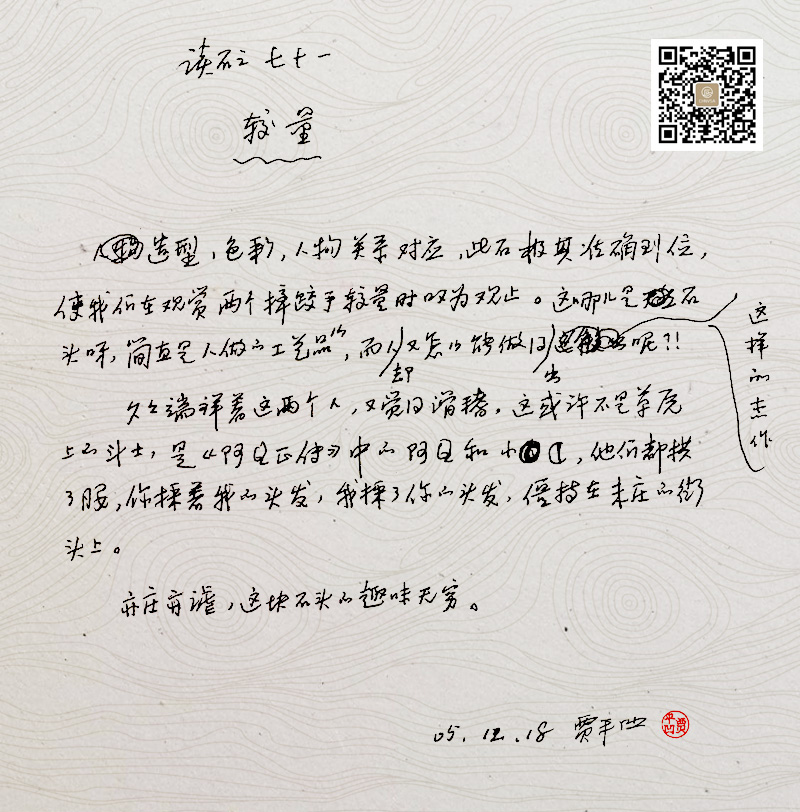 读石之七十一
较量
造型、色彩,人物关系对应,此石极其准确到位,
使我们在观赏两个摔跤手较量时叹为观止。这哪儿是石
头呀,简直是人做的工艺品,而人又怎么能做得呢?!
却 出
这样的杰作
久久端详着这两个人,又觉得滑稽,这或许不是草原
上的斗士,是《阿Q正传》中的阿Q和小D,他们都拱
了腰,你揪着我的头发,我揪了你的头发,僵持在未庄的街
头上。
亦庄亦谐,这块石头的趣味无穷。
05.12.18 贾平凹
贾平凹